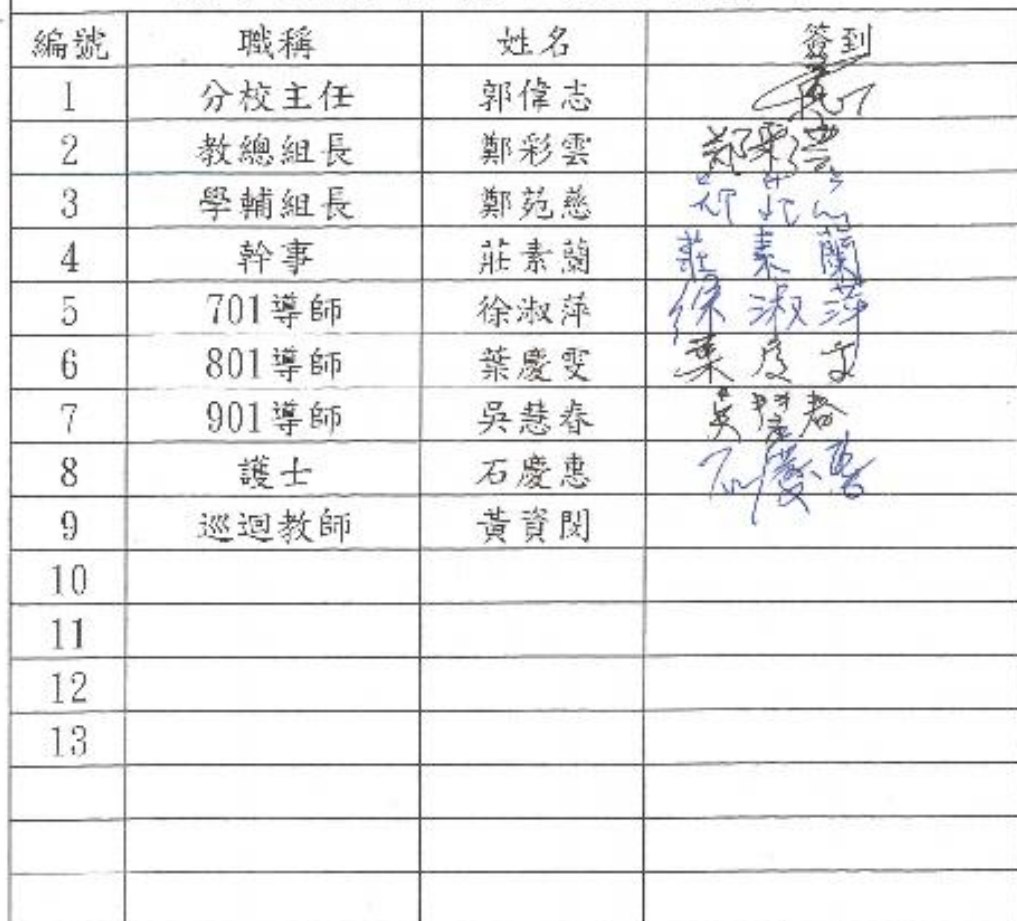 編號 職稱 姓名 簽到
1 分校主任 郭偉志
2 教總組長 鄭彩雲 鄭彩雲
3 學輔組長 鄭苑慈
4 幹事 莊素蘭 莊素蘭
5 701導師 徐淑萍 徐淑萍
6 801導師 葉慶雯 葉慶文
7 901導師 吳慧春 吳慧春
8 護士 石慶惠 石慶惠
9 巡迴教師 黃資閔
10
11
12
13